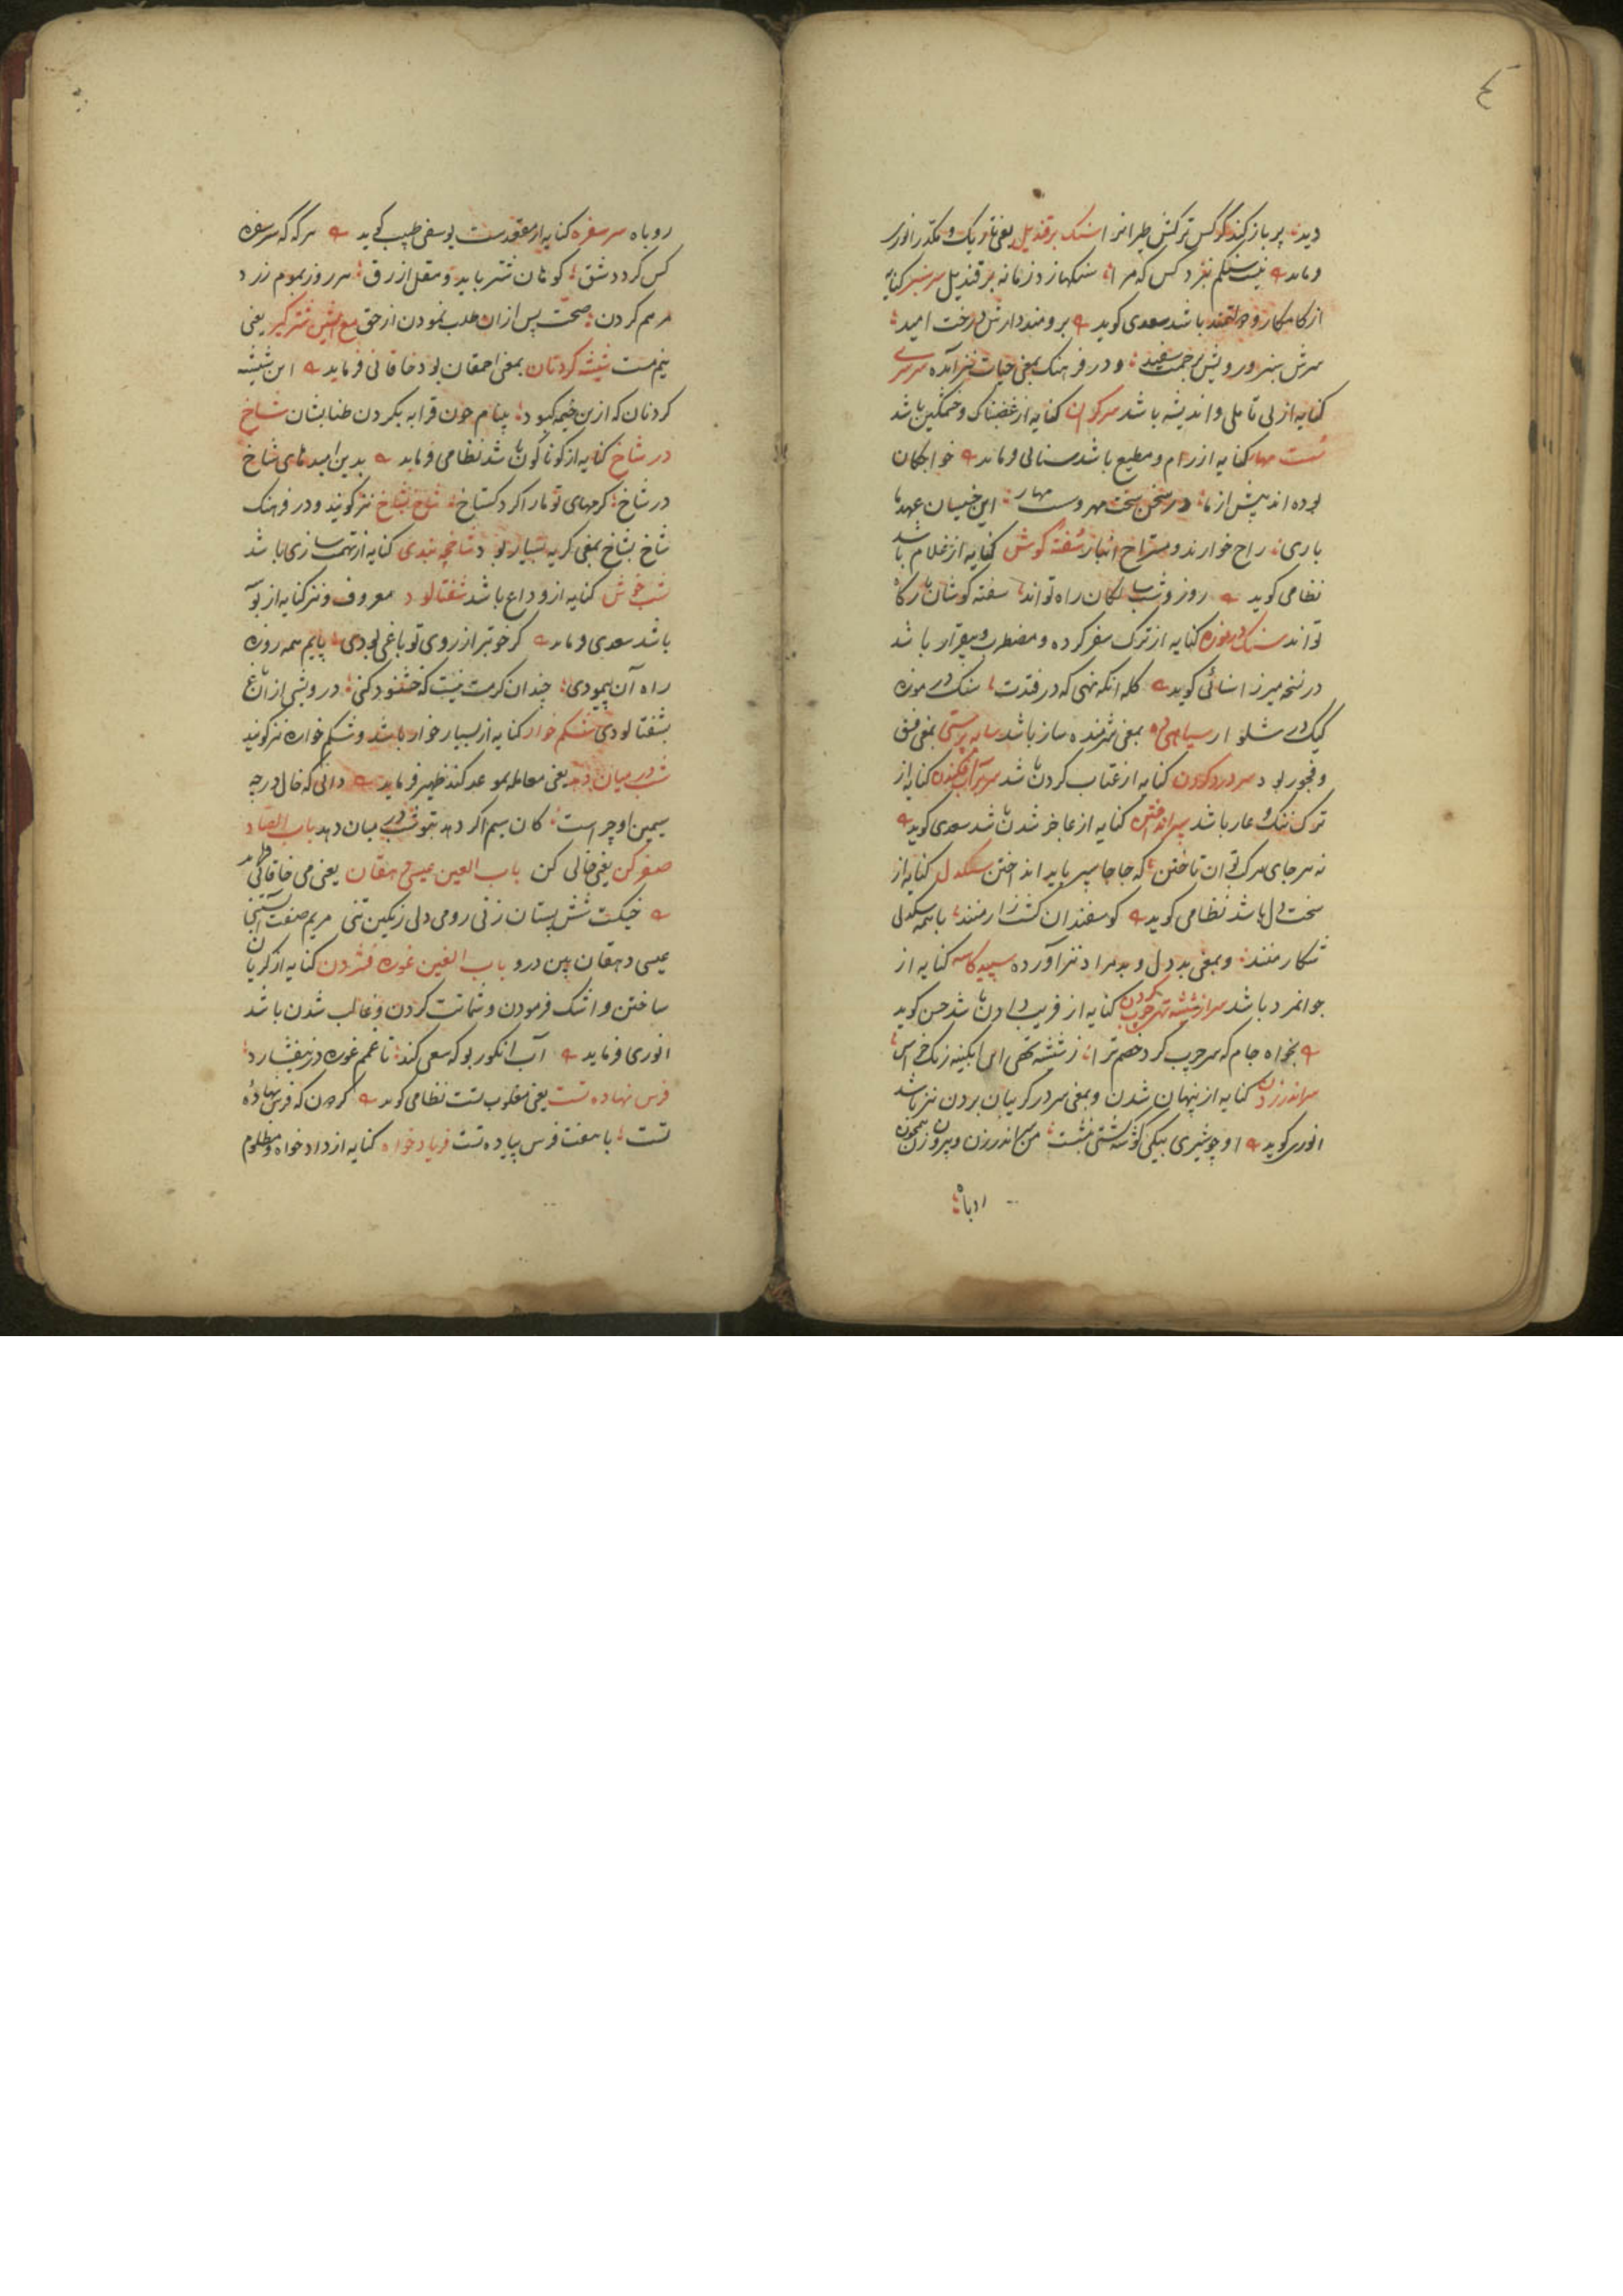 دید پر باز کند کرکس ترکش طیرانرا سنک بر قندیل یعنی تاریک و مکدر انوری
فرماید نیست سنکم نزد کس که مرا سنکها زد زمانه بر قندیل سرسبز کنایه
از کامکار و دولتمند باشد سعدی کوید برومند دارش درخت امید
سرش سبز و رویش برحمت سفید و در فرهنک بمعنی حیات نیز آمده سرسری
کنایه از بی تاملی و اندیشه باشد سرکران کنایه از غضبناک و خشمکین باشد
سست مهار کنایه از رام و مطیع باشد سنائی فرماید خواجکان
بوده اند پیش از ما در سخن سخت مهر و سست مهار این خسیسان عهد ما
باری راح خوارند و مستراح انبار سفته کوش کنایه از غلام باشد
نظامی کوید روز و شب سالکان راه تواند سفته کوشان بارکاه
تواند سنک در موزه کنایه از ترک سفر کرده و مضطرب و بیقرار باشد
در نسخه میرزا سنائی کوید کله آنکه نهی که در فتدت سنک در موزه
کیک در شلوار سیاهی ده بمعنی شرمنده ساز باشد سایه پرستی بمعنی فسق
و فجور بود سردرد کردن کنایه از عتاب کردن باشد سپر بر آب فکندن کنایه از
ترک ننک و عار باشد سپر انداختن کنایه از عاجز شدن باشد سعدی کوید
نه هر جای مرکب توان تاختن که جاجا سپر باید انداختن سنکدل کنایه از
سخت دل باشد نظامی کوید کوسفندان کشتزار منند با همه سنکدلی
شکار منند و بمعنی بددل و بدمراد نیز آورده سپید کاسه کنایه از
جوانمرد باشد سر از شیشه تهی چرب کردن کنایه از فریب دادن باشد حسن کوید
بخواه جام که سر چرب کرد خصم ترا ز شیشه تهی این آبکینه رنک خراس
سر اندر زدن کنایه از پنهان شدن و بمعنی سر در کریبان بردن نیز باشد
انوری کوید او چو شیری بیکی کوشه کشتی بنشست من سر اندر زن و بیرون زن همچون
روباه
روباه سر سفره کنایه از مقعد ست یوسفی طبیب کوید هر که که سر سفره
کس کرد دشق کوهان شتر باید و مقل ازرق هر روز بموم زرد
مرهم کردن صحت پس از ان طلب نمودن از حق شیر کیر یعنی
نیم مست شیشه کردنان بمعنی احمقان بود خاقانی فرماید این شیشه
کردنان که ازین خیمه کبود بینام چون قرابه بکردن طنابشان شاخ
در شاخ کنایه از کوناکون باشد نظامی فرماید بدین امیدهای شاخ
در شاخ کرمهای تو ما را کرد کستاخ شاخ بشاخ نیز کویند و در فرهنک
شاخ بشاخ بمعنی کریه بسیار بود شاخچه بندی کنایه از تهمت سازی باشد
شب خوش کنایه از وداع باشد شفتالود معروف و نیز کنایه از بوسه
باشد سعدی فرماید کر خوبتر از روی تو باغی بودی پایم همه روزه
راه آن پیمودی چندان کرمت نیست که خشنود کنی درویشی از باغ
بشفتالودی شکم خوار کنایه از بسیار خوار باشد و شکم خواره نیز کویند
شب در میان دهد یعنی معامله بموعد کند ظهیر فرماید دانی که خال درجه
سیمین او چراست کان سیم اکر دهد بتو شب در میان دهد باب الصاد
صفر کن یعنی خالی کن باب العین عیسی دهقان یعنی می خاقانی فرماید
خیکست شش پستان زنی رومی دلی زنکین تنی مریم صفت آبستنی
عیسی دهقان بین درو باب الغین غوره فشردن کنایه از کریان
ساختن و اشک فرمودن و شماتت کردن و غالب شدن باشد
انوری فرماید آب انکور بو که سعی کند تا غمم غوره در نیفشارد
فرس نهاده تست یعنی مغلوب تست نظامی کوید کردون که فرس نهاده
تست با هفت فرس پیاده تست فریاد خواه کنایه از داد خواه و مظلوم